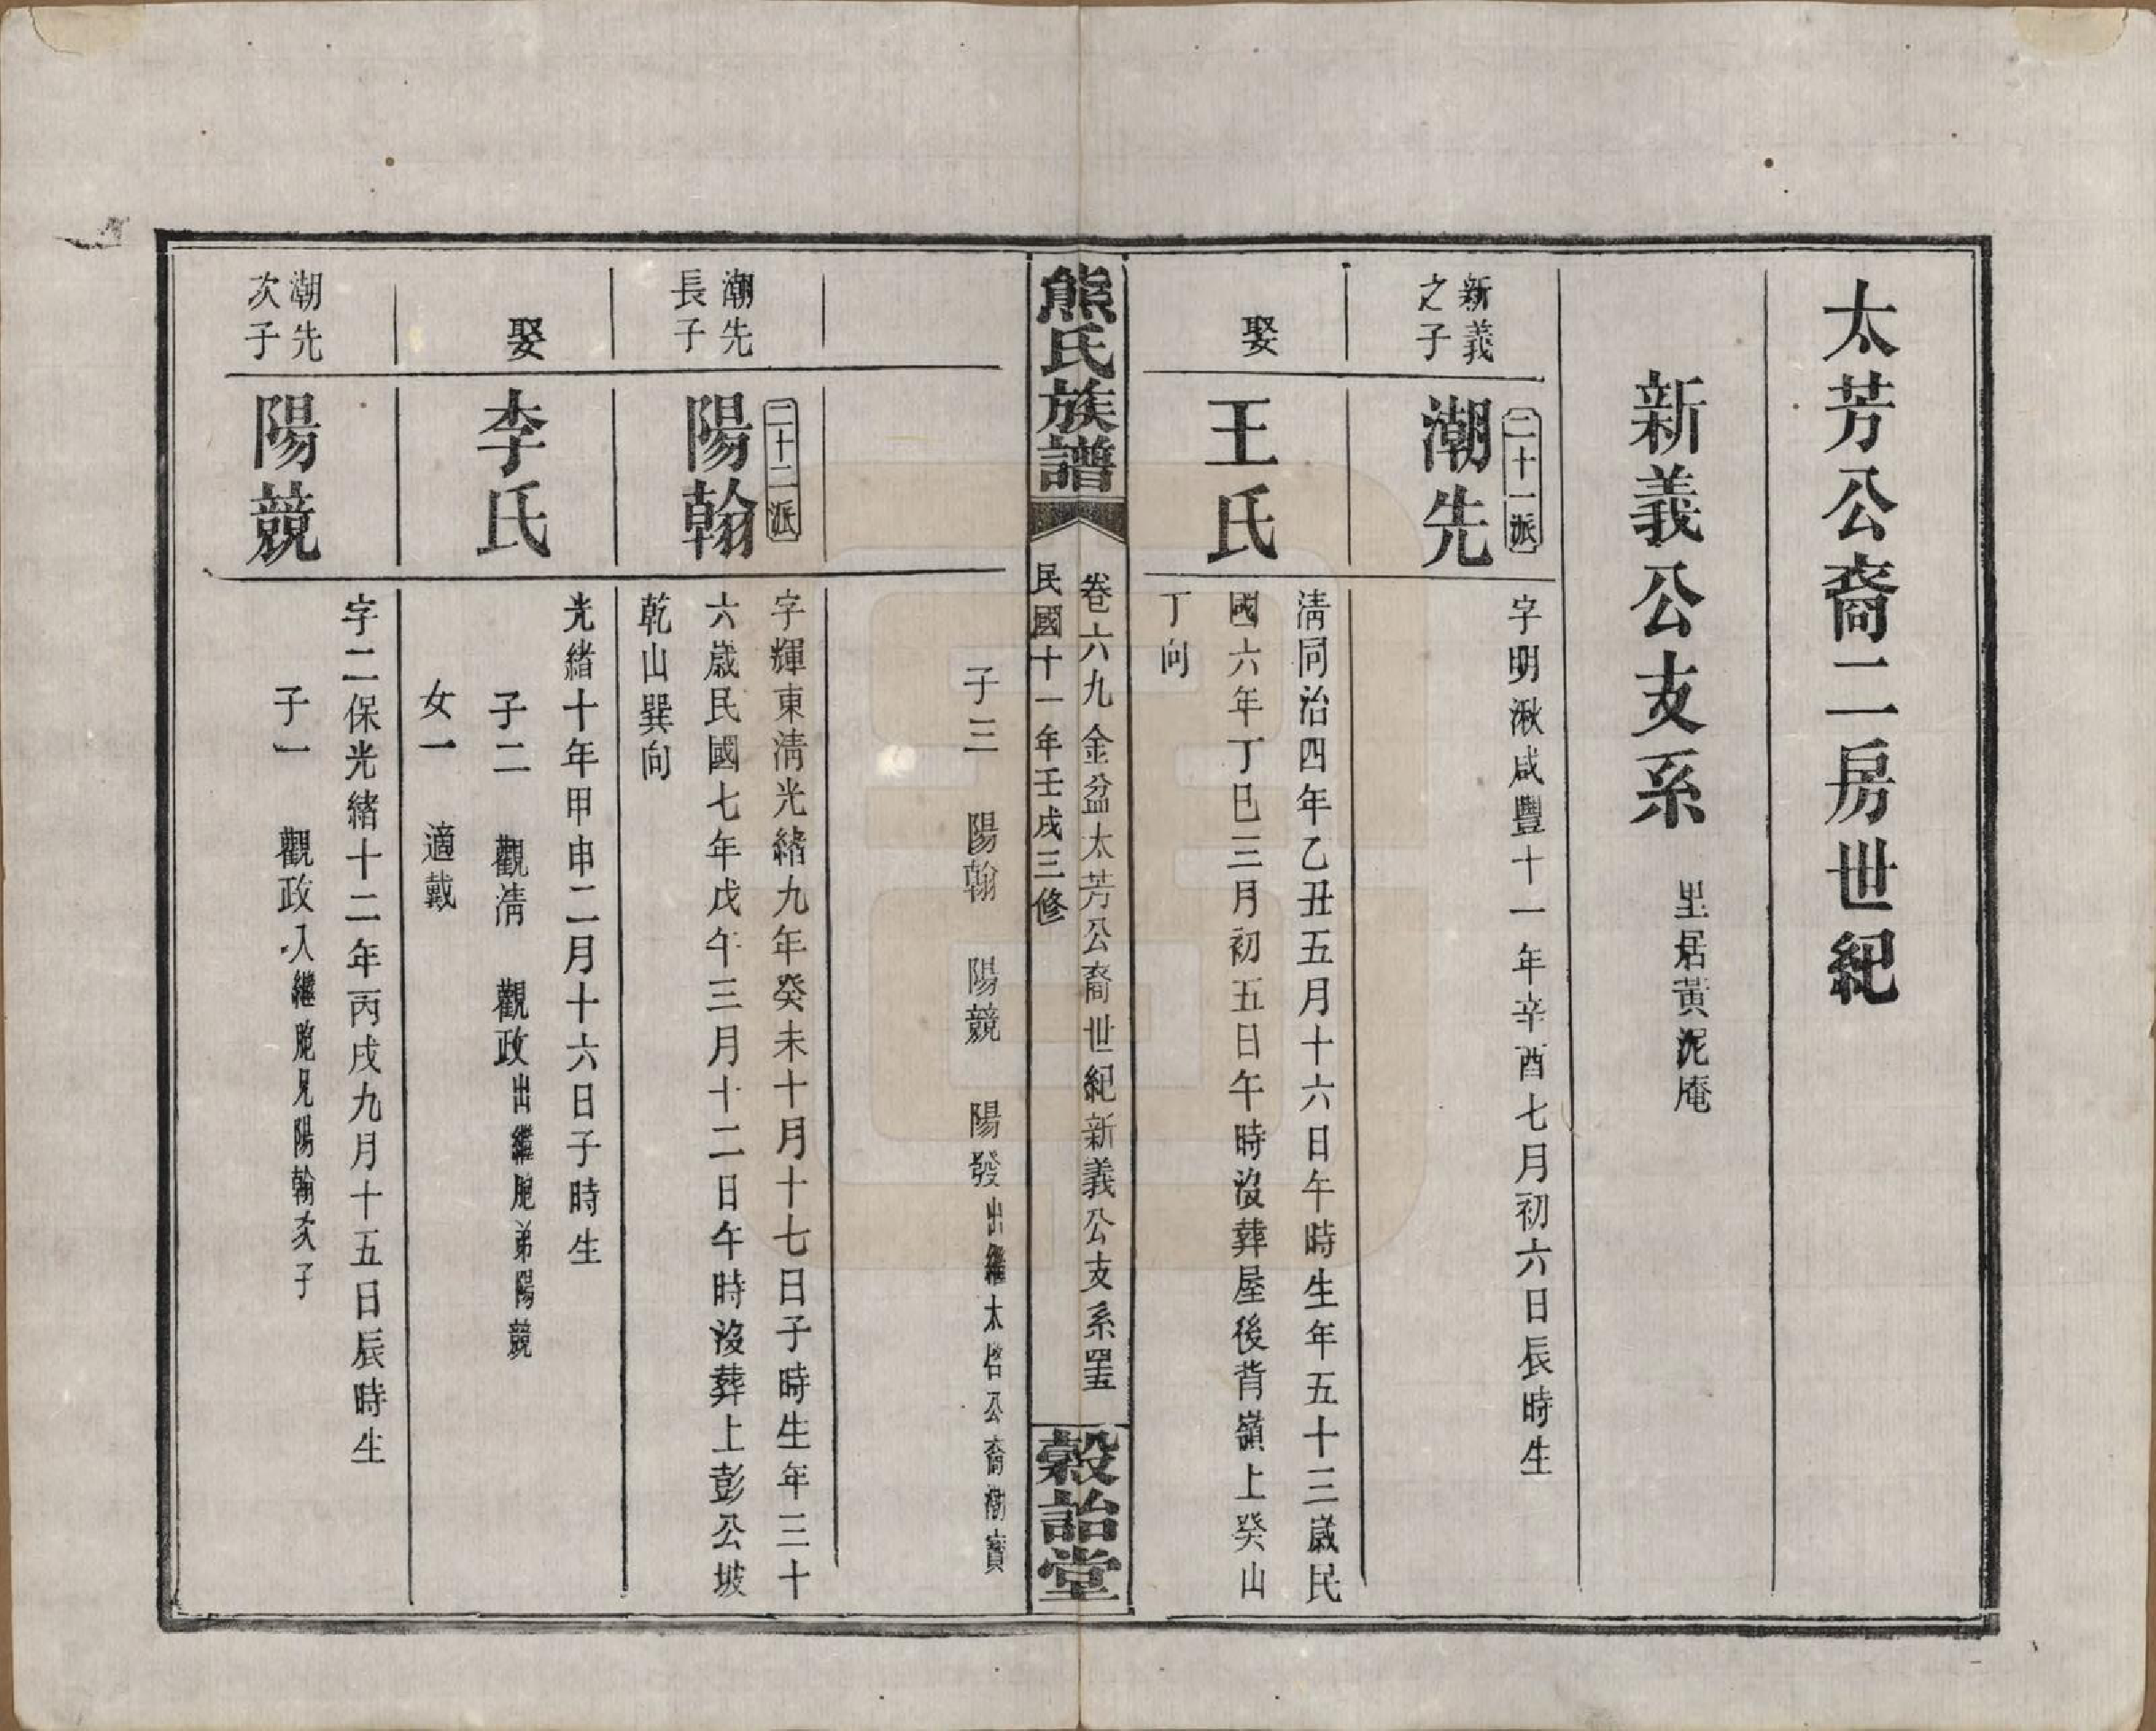 太芳公裔二房世紀
新義公支系 里居黃泥庵
新義
之子
二十一派
潮先
字明湫咸豐十一年辛酉七月初六日辰時生
娶
王氏
清同治四年乙丑五月十六日午時生年五十三歲民
國六年丁巳三月初五日午時沒葬屋後背嶺上癸山
丁向
熊氏族譜
卷六九 金盆太芳公裔世紀新義公支系 四五
民國十一年壬戌三修
穀詒堂
子三 陽翰 陽競 陽發出繼太啓公裔潮寶
潮先
長子
二十二派
陽翰
字輝東清光緒九年癸未十月十七日子時生年三十
六歲民國七年戊午三月十二日午時沒葬上彭公坡
乾山巽向
娶
李氏
光緒十年甲申二月十六日子時生
子二 觀清 觀政出繼胞弟陽競
女一 適戴
潮先
次子
陽競
字二保光緒十二年丙戌九月十五日辰時生
子一 觀政入繼胞兄陽翰次子